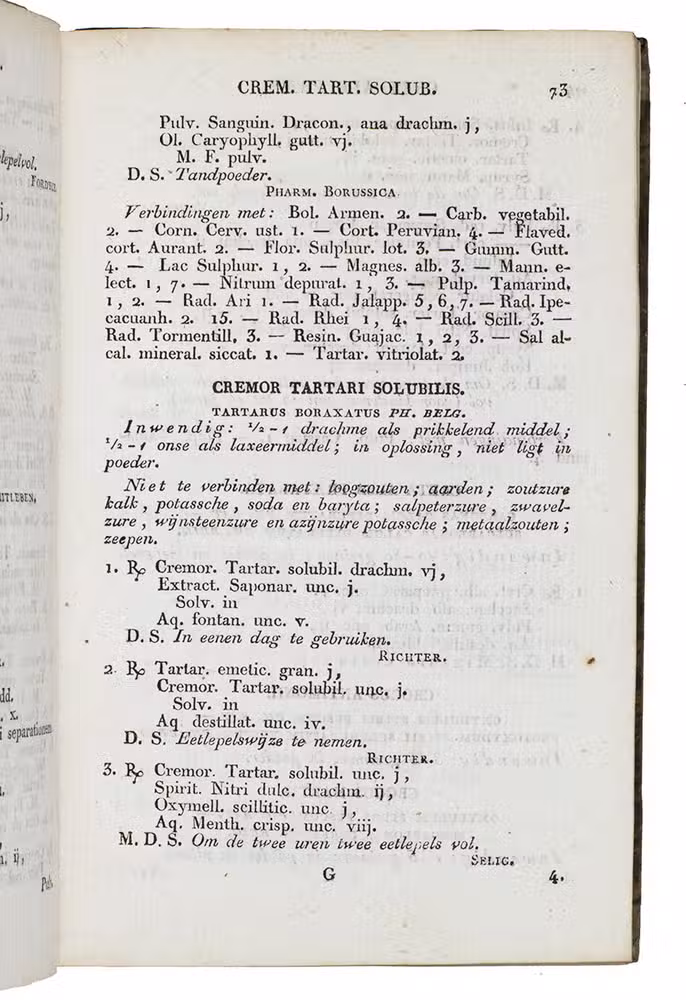 CREM. TART. SOLUB. 73
Pulv. Sanguin. Dracon., ana drachm. j,
Ol. Caryophyll. gutt. vj.
M. F. pulv.
D. S. Tandpoeder.
PHARM. BORUSSICA.
Verbindingen met: Bol. Armen. 2. — Carb. vegetabil.
2. — Corn. Cerv. ust. 1. — Cort. Peruvian. 4. — Flaved.
cort. Aurant. 2. — Flor. Sulphur. lot. 3. — Gumm. Gutt.
4. — Lac Sulphur. 1, 2. — Magnes. alb. 3. — Mann. e-
lect. 1, 7. — Nitrum depurat. 1, 3. — Pulp. Tamarind.
1, 2. — Rad. Ari 1. — Rad. Jalapp. 5, 6, 7. — Rad. Ipe-
cacuanh. 2. 15. — Rad. Rhei 1, 4. — Rad. Scill. 3. —
Rad. Tormentill. 3. — Resin. Guajac. 1, 2, 3. — Sal al-
cal. mineral. siccat. 1. — Tartar. vitriolat. 2.
CREMOR TARTARI SOLUBILIS.
TARTARUS BORAXATUS PH. BELG.
Inwendig: 1/2 - 1 drachme als prikkelend middel;
1/2 - 1 onse als laxeermiddel; in oplossing, niet ligt in
poeder.
Niet te verbinden met: loogzouten; aarden; zoutzure
kalk, potassche, soda en baryta; salpeterzure, zwavel-
zure, wijnsteenzure en azijnzure potassche; metaalzouten;
zeepen.
1. ℞ Cremor. Tartar. solubil. drachm. vj,
Extract. Saponar. unc. j.
Solv. in
Aq. fontan. unc. v.
D. S. In eenen dag te gebruiken.
RICHTER.
2. ℞ Tartar. emetic. gran. j,
Cremor. Tartar. solubil. unc. j.
Solv. in
Aq. destillat. unc. iv.
D. S. Eetlepelswijze te nemen.
RICHTER.
3. ℞ Cremor. Tartar. solubil. unc. j,
Spirit. Nitri dulc. drachm. ij,
Oxymell. scillitic. unc. j,
Aq. Menth. crisp. unc. viij.
M. D. S. Om de twee uren twee eetlepels vol.
SELIG.
G 4.